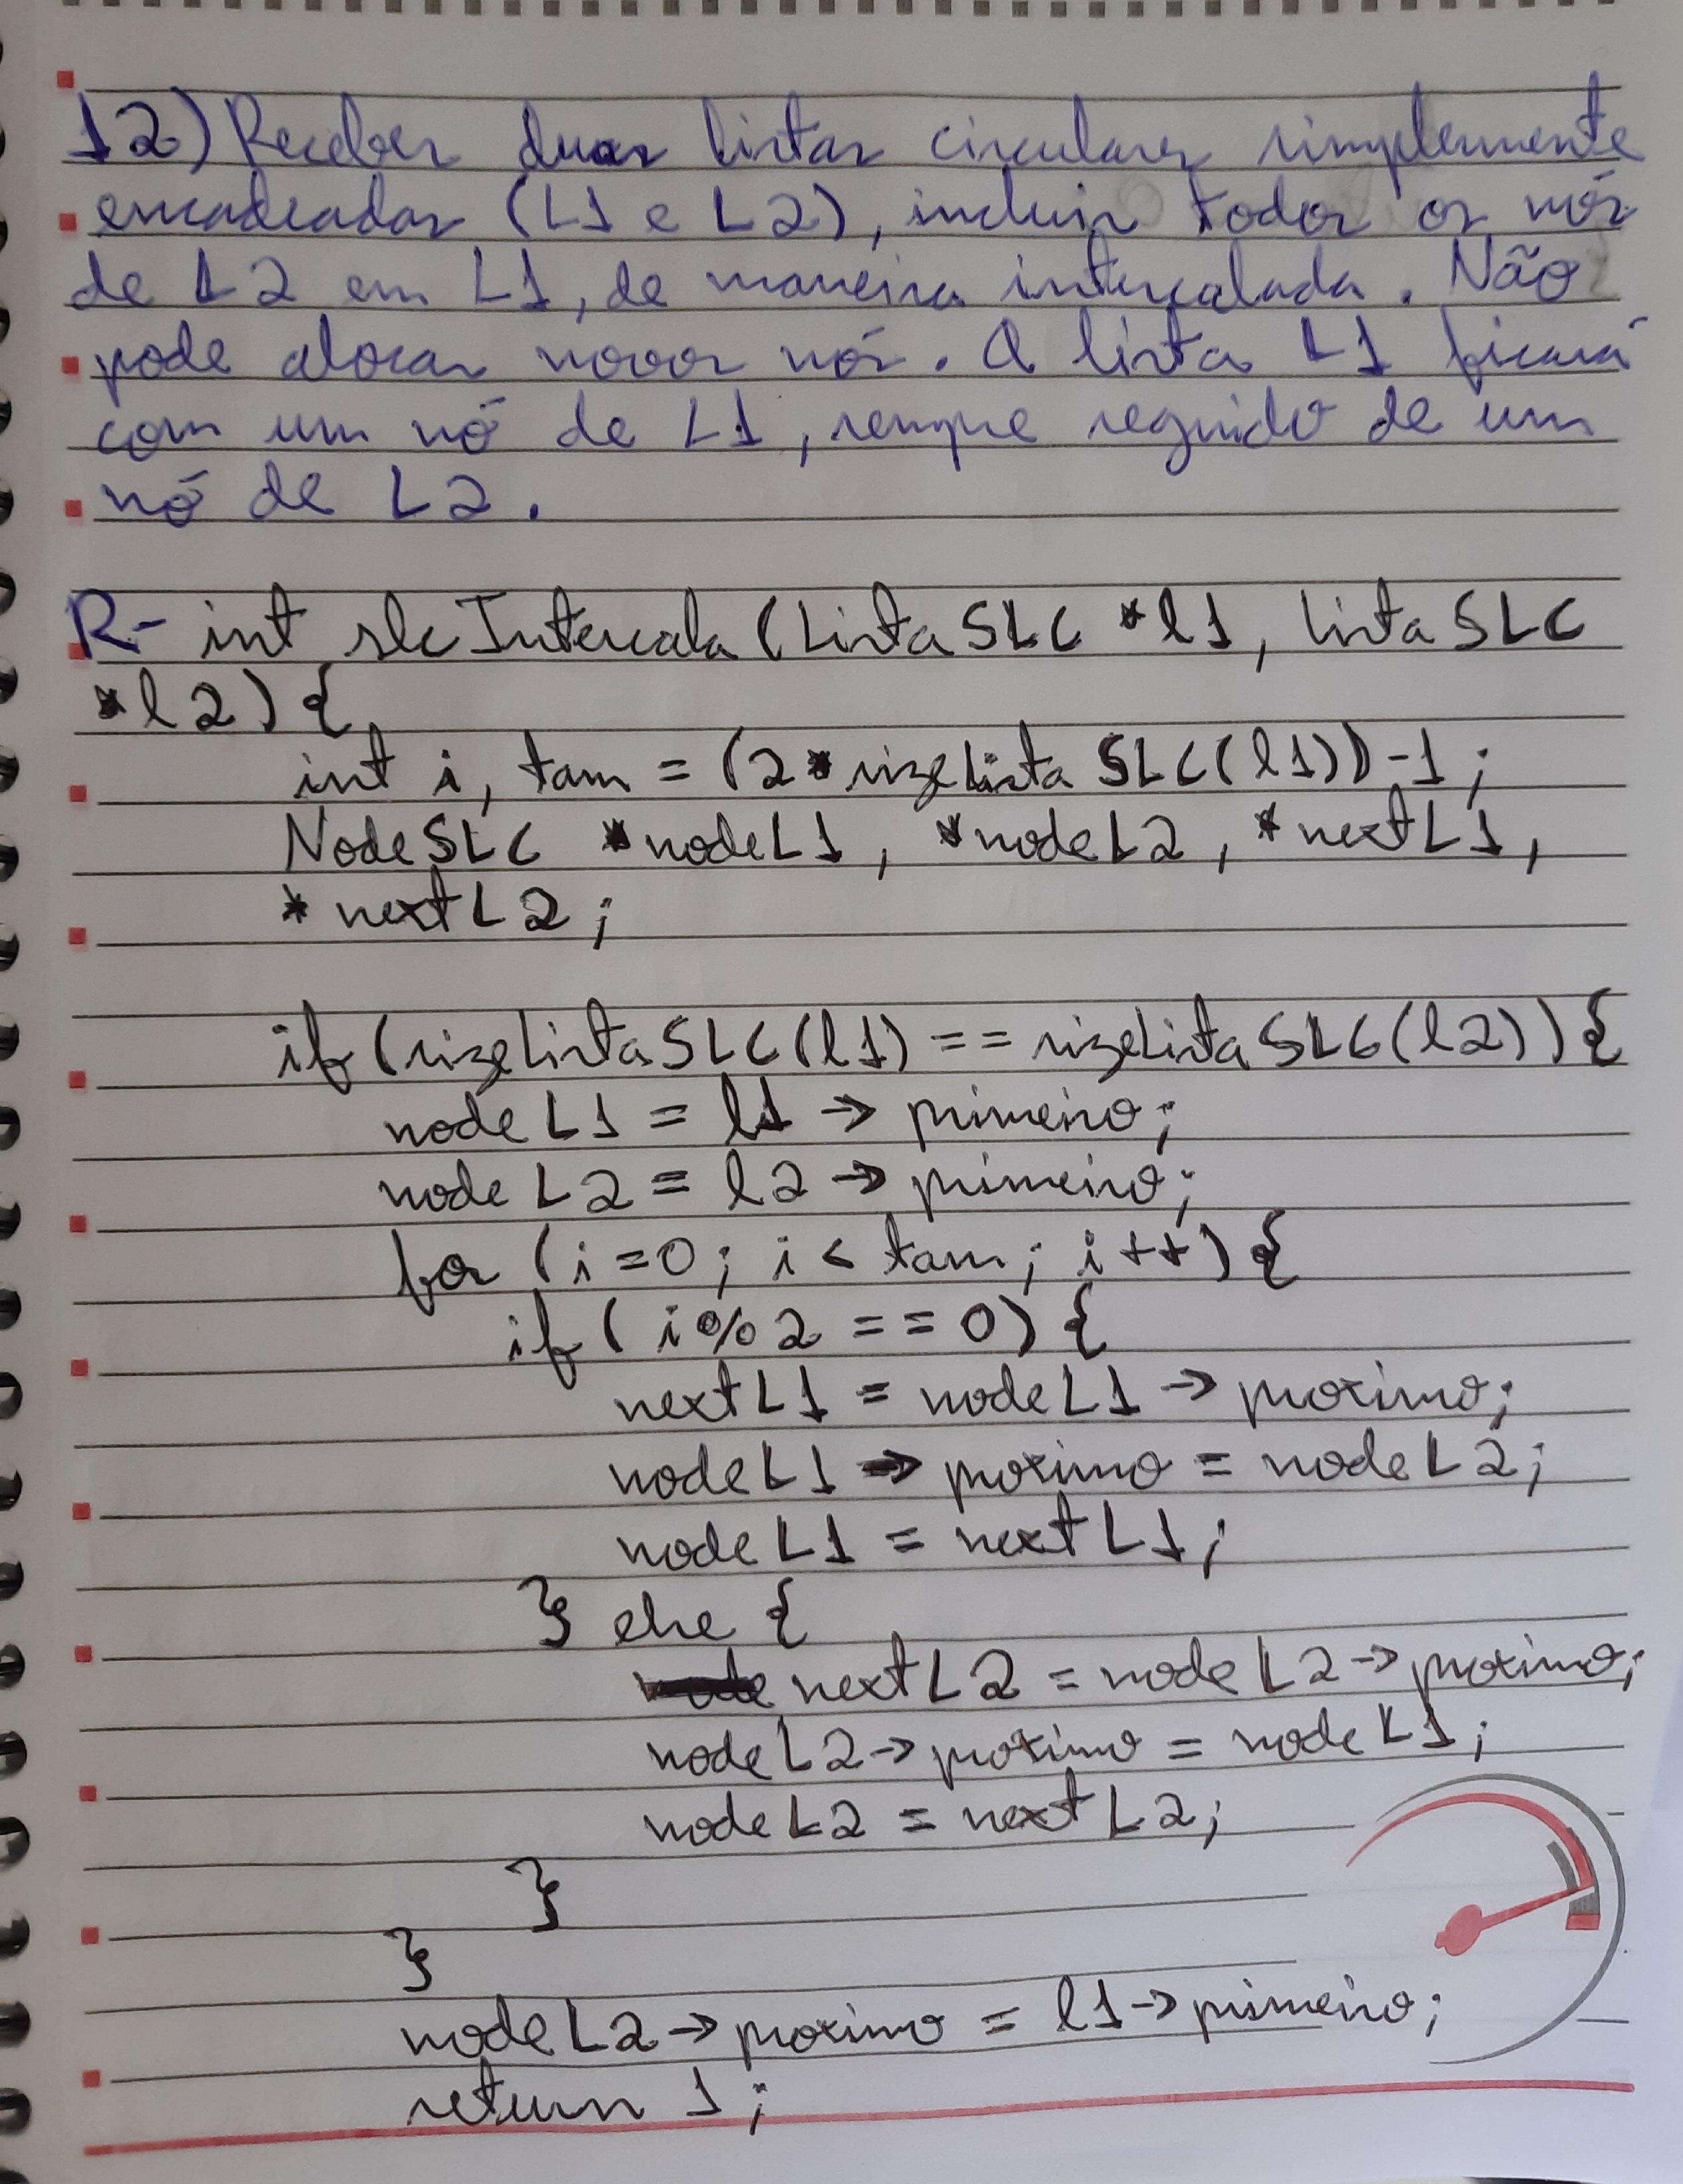 12) Receber duas listas circulares simplesmente
encadeadas (L1 e L2), incluir todos os nós
de L2 em L1, de maneira intercalada. Não
pode alocar novos nós. A lista L1 ficará
com um nó de L1, sempre seguido de um
nó de L2.
R- int slcIntercala (ListaSLC *l1, listaSLC
*l2) {
int i, tam = (2*sizeListaSLC(l1))-1;
NodeSLC *nodeL1, *nodeL2, *nextL1,
*nextL2;
if (sizeListaSLC(l1) == sizeListaSLC(l2)) {
nodeL1 = l1 -> primeiro;
nodeL2 = l2 -> primeiro;
for (i=0; i < tam; i++) {
if (i%2 == 0) {
nextL1 = nodeL1 -> proximo;
nodeL1 -> proximo = nodeL2;
nodeL1 = nextL1;
} else {
nextL2 = nodeL2 -> proximo;
nodeL2 -> proximo = nodeL1;
nodeL2 = nextL2;
}
}
nodeL2 -> proximo = l1 -> primeiro;
return 1;